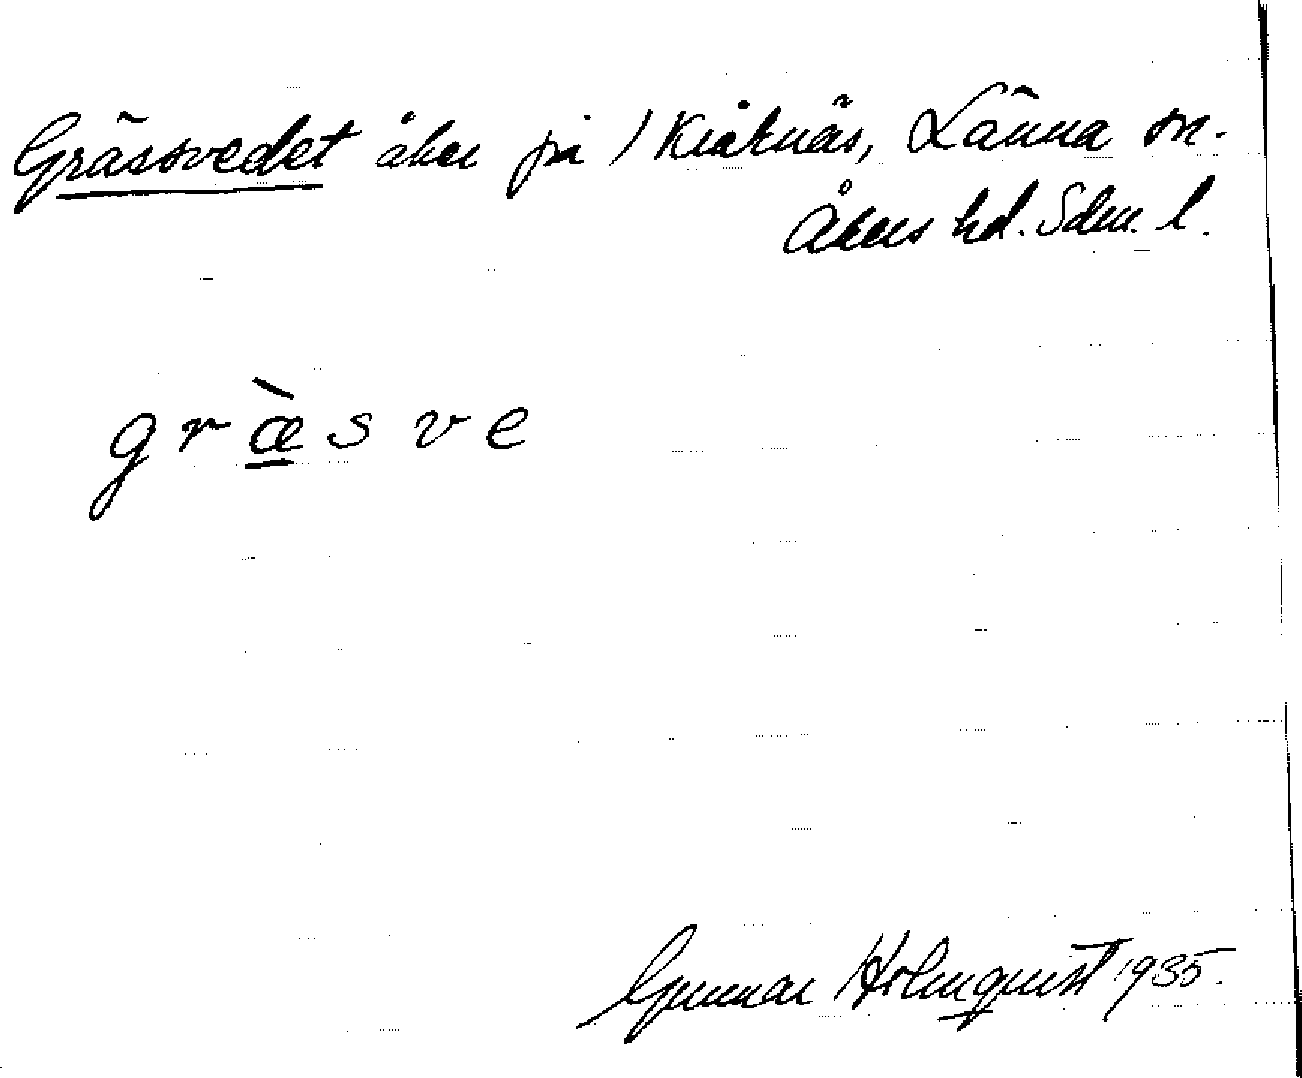 Grässvedet åker på Kråknäs, Länna sn.
Åkers hd. Sdm. l.
græ̀sve
Gunnar Holmquist 1935.